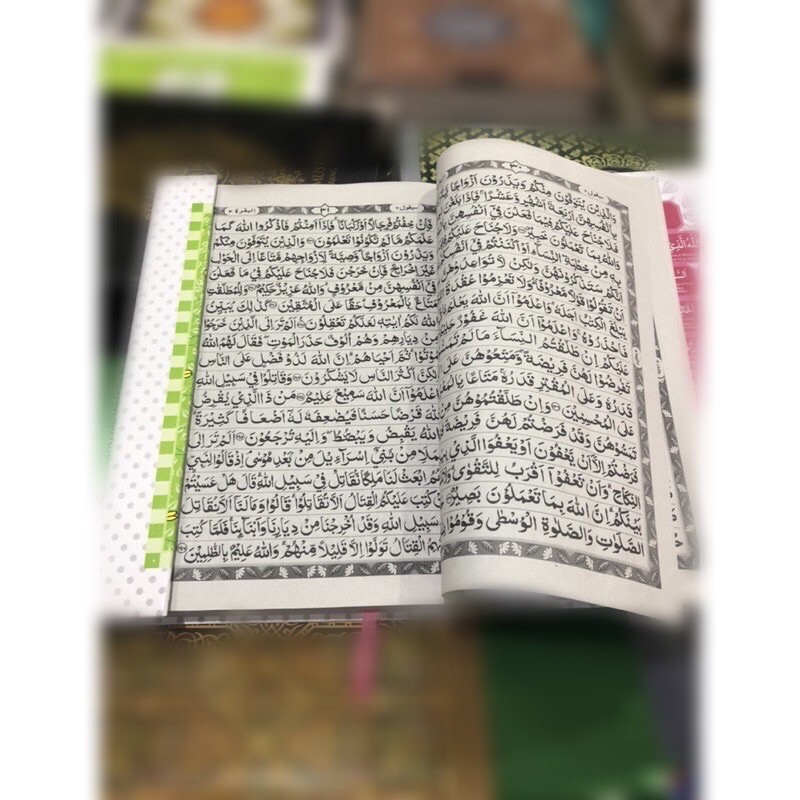 سيقول ٢
وَالَّذِيْنَ يُتَوَفَّوْنَ مِنْكُمْ وَيَذَرُوْنَ اَزْوَاجًا
بِاَنْفُسِهِنَّ اَرْبَعَةَ اَشْهُرٍ وَّعَشْرًا ۚ فَاِذَا بَلَغْنَ
فَلَا جُنَاحَ عَلَيْكُمْ فِيْمَا فَعَلْنَ فِيْٓ اَنْفُسِهِنَّ
وَاللّٰهُ بِمَا تَعْمَلُوْنَ خَبِيْرٌ وَلَا جُنَاحَ عَلَيْكُمْ
بِهٖ مِنْ خِطْبَةِ النِّسَآءِ اَوْ اَكْنَنْتُمْ فِيْٓ
اَنَّكُمْ سَتَذْكُرُوْنَهُنَّ وَلٰكِنْ لَّا تُوَاعِدُوْهُنَّ
اَنْ تَقُوْلُوْا قَوْلًا مَّعْرُوْفًا وَلَا تَعْزِمُوْا عُقْدَةَ
يَبْلُغَ الْكِتٰبُ اَجَلَهٗ وَاعْلَمُوْٓا اَنَّ اللّٰهَ يَعْلَمُ
فَاحْذَرُوْهُ وَاعْلَمُوْٓا اَنَّ اللّٰهَ غَفُوْرٌ
عَلَيْكُمْ اِنْ طَلَّقْتُمُ النِّسَآءَ مَا لَمْ
تَفْرِضُوْا لَهُنَّ فَرِيْضَةً وَّمَتِّعُوْهُنَّ
قَدَرُهٗ وَعَلَى الْمُقْتِرِ قَدَرُهٗ مَتَاعًا
عَلَى الْمُحْسِنِيْنَ وَاِنْ طَلَّقْتُمُوْهُنَّ مِنْ
تَمَسُّوْهُنَّ وَقَدْ فَرَضْتُمْ لَهُنَّ فَرِيْضَةً
فَرَضْتُمْ اِلَّآ اَنْ يَّعْفُوْنَ اَوْ يَعْفُوَا الَّذِيْ
النِّكَاحِ وَاَنْ تَعْفُوْٓا اَقْرَبُ لِلتَّقْوٰى
بَيْنَكُمْ اِنَّ اللّٰهَ بِمَا تَعْمَلُوْنَ بَصِيْرٌ
الصَّلَوٰتِ وَالصَّلٰوةِ الْوُسْطٰى وَقُوْمُوْا
سيقول ٢
البقرة ٢
فَاِنْ خِفْتُمْ فَرِجَالًا اَوْ رُكْبَانًا فَاِذَآ اَمِنْتُمْ فَاذْكُرُوا اللّٰهَ كَمَا
عَلَّمَكُمْ مَّا لَمْ تَكُوْنُوْا تَعْلَمُوْنَ وَالَّذِيْنَ يُتَوَفَّوْنَ مِنْكُمْ
وَيَذَرُوْنَ اَزْوَاجًا وَّصِيَّةً لِّاَزْوَاجِهِمْ مَّتَاعًا اِلَى الْحَوْلِ
غَيْرَ اِخْرَاجٍ فَاِنْ خَرَجْنَ فَلَا جُنَاحَ عَلَيْكُمْ فِيْ مَا فَعَلْنَ
فِيْٓ اَنْفُسِهِنَّ مِنْ مَّعْرُوْفٍ وَاللّٰهُ عَزِيْزٌ حَكِيْمٌ وَلِلْمُطَلَّقٰتِ
مَتَاعٌ بِالْمَعْرُوْفِ حَقًّا عَلَى الْمُتَّقِيْنَ كَذٰلِكَ يُبَيِّنُ
اللّٰهُ لَكُمْ اٰيٰتِهٖ لَعَلَّكُمْ تَعْقِلُوْنَ اَلَمْ تَرَ اِلَى الَّذِيْنَ خَرَجُوْا
مِنْ دِيَارِهِمْ وَهُمْ اُلُوْفٌ حَذَرَ الْمَوْتِ فَقَالَ لَهُمُ اللّٰهُ
مُوْتُوْا ثُمَّ اَحْيَاهُمْ اِنَّ اللّٰهَ لَذُوْ فَضْلٍ عَلَى النَّاسِ
وَلٰكِنَّ اَكْثَرَ النَّاسِ لَا يَشْكُرُوْنَ وَقَاتِلُوْا فِيْ سَبِيْلِ اللّٰهِ
وَاعْلَمُوْٓا اَنَّ اللّٰهَ سَمِيْعٌ عَلِيْمٌ مَنْ ذَا الَّذِيْ يُقْرِضُ
اللّٰهَ قَرْضًا حَسَنًا فَيُضٰعِفَهٗ لَهٗٓ اَضْعَافًا كَثِيْرَةً
وَاللّٰهُ يَقْبِضُ وَيَبْصُۣطُ وَاِلَيْهِ تُرْجَعُوْنَ اَلَمْ تَرَ اِلَى
الْمَلَاِ مِنْ بَنِيْٓ اِسْرَآءِيْلَ مِنْ بَعْدِ مُوْسٰى اِذْ قَالُوْا لِنَبِيٍّ
لَّهُمُ ابْعَثْ لَنَا مَلِكًا نُّقَاتِلْ فِيْ سَبِيْلِ اللّٰهِ قَالَ هَلْ عَسَيْتُمْ
اِنْ كُتِبَ عَلَيْكُمُ الْقِتَالُ اَلَّا تُقَاتِلُوْا قَالُوْا وَمَا لَنَآ اَلَّا نُقَاتِلَ
سَبِيْلِ اللّٰهِ وَقَدْ اُخْرِجْنَا مِنْ دِيَارِنَا وَاَبْنَآئِنَا فَلَمَّا كُتِبَ
عَلَيْهِمُ الْقِتَالُ تَوَلَّوْا اِلَّا قَلِيْلًا مِّنْهُمْ وَاللّٰهُ عَلِيْمٌ بِالظّٰلِمِيْنَ